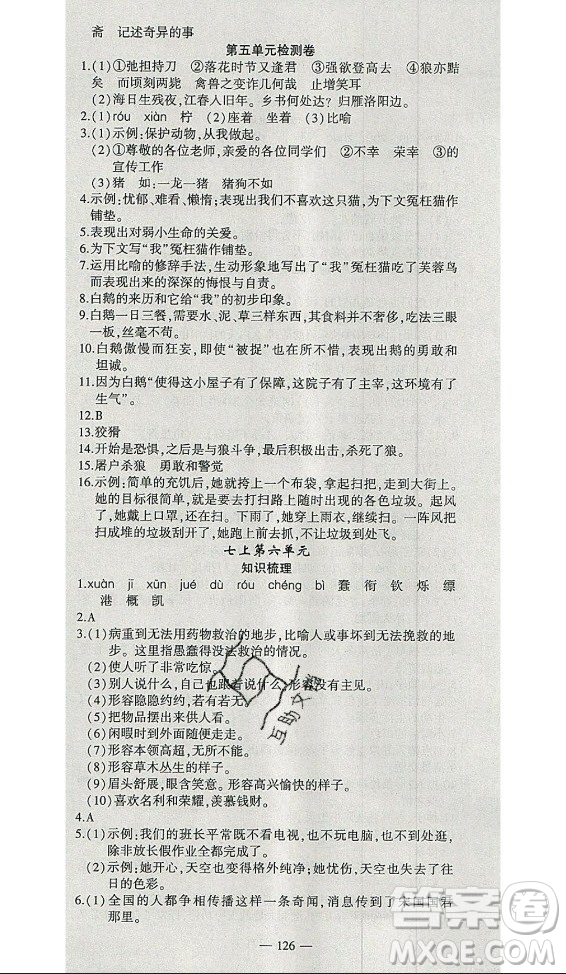 斋　记述奇异的事
第五单元检测卷
1.(1)①弛担持刀　②落花时节又逢君　③强欲登高去　④狼亦黠
矣　而顷刻两毙　禽兽之变诈几何哉　止增笑耳
(2)海日生残夜，江春入旧年。乡书何处达？归雁洛阳边。
2.(1)róu　xiàn　柠　(2)座着　坐着　(3)比喻
3.(1)示例：保护动物，从我做起。
(2)①尊敬的各位老师，亲爱的各位同学们　②不幸　荣幸　③的
宣传工作
(3)猪　如：一龙一猪　猪狗不如
4.示例：忧郁、难看、懒惰；表现出我们不喜欢这只猫，为下文冤枉猫作
铺垫。
5.表现出对弱小生命的关爱。
6.为下文写“我”冤枉猫作铺垫。
7.运用比喻的修辞手法，生动形象地写出了“我”冤枉猫吃了芙蓉鸟
而表现出来的深深的悔恨与自责。
8.白鹅的来历和它给“我”的初步印象。
9.白鹅一日三餐，需要水、泥、草三样东西，其食谱简单，吃法三眼
一板，丝毫不苟。
10.白鹅傲慢而狂妄，即使“被捉”也不失态，表现出鹅的勇敢和
坦诚。
11.因为白鹅“使得这小屋子有了保障，这院子有了主宰，这环境有了
生气”。
12.B
13.狡猾
14.开始是恐惧，之后是与狼斗争，最后积极出击，杀死了狼。
15.屠户杀狼　勇敢和警觉
16.示例：简单的充饥后，她就挎上一个布袋，拿起扫把，走到大街上。
她的目标很简单，就是要打扫路上随时出现的各色垃圾。起风
了，她戴上口罩，继续扫。下雨了，她穿上雨衣，继续扫。一阵风把
扫成堆的垃圾刮到前面了，她跑上前去抓，不让它们到处飞。
七上第六单元
知识梳理
1.xuàn　jī　xūn　jué　dù　róu　chéng　bì　蠢　衔　钦　烁　缥
港　概　凯
2.A
3.(1)病重到无法用药物救治的地步，比喻人或事坏到无法挽救的地
步。这里指愚蠢得没法救治的情况。
(2)使人听了非常吃惊。
(3)别人说什么，自己也跟着说什么，形容没有主见。
(4)形容隐隐约约，若有若无。
(5)把物品摆出来供人看。
(6)闲暇时到外面随便走走。
(7)形容本领高超，无所不能。
(8)形容草木丛生的样子。
(9)眉头舒展，眼含笑意。形容高兴愉快的样子。
(10)喜欢名利和荣耀，羡慕钱财。
4.A
5.(1)示例：我们的班长平常既不看电视，也不玩电脑，也不逛街，
除非放长假作业全部完成了。
(2)示例：她开心，天空也变得格外纯净；她忧伤，天空也失去了往
日的色彩。
6.(1)全国的人都争相传播这样一条奇闻，消息一直传到了宋国国君
那里。
— 126 —
互助文档
作业精灵
MXQE.COM